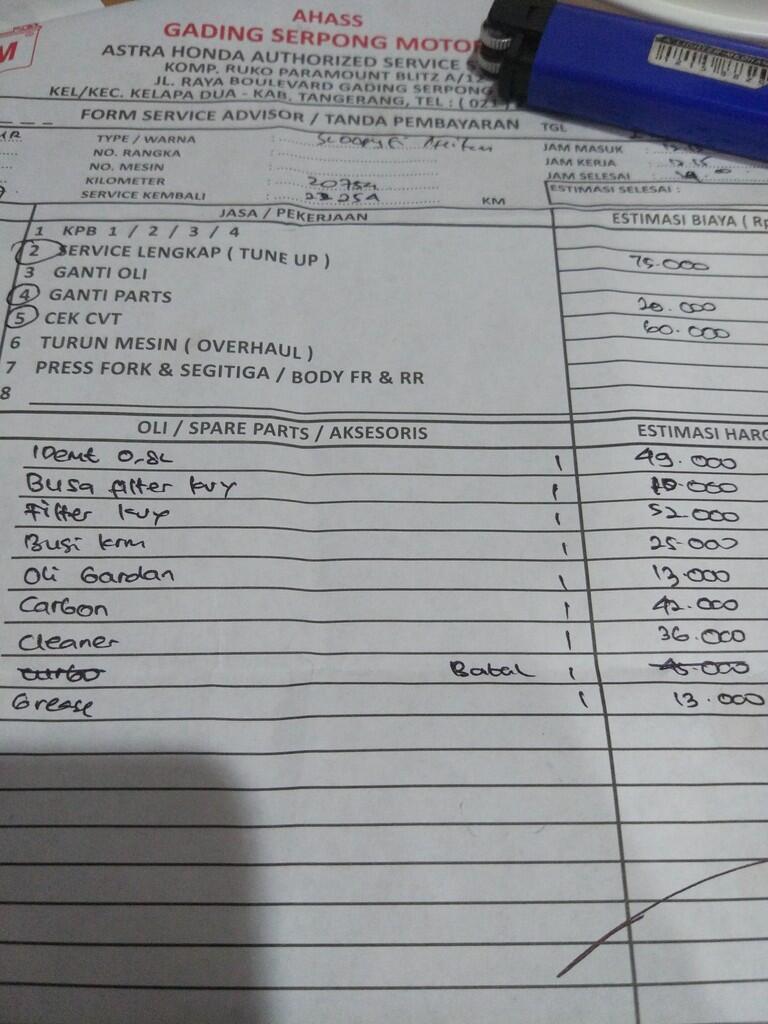 M
AHASS
GADING SERPONG MOTOR
ASTRA HONDA AUTHORIZED SERVICE
KOMP. RUKO PARAMOUNT BLITZ A/12
JL. RAYA BOULEVARD GADING SERPONG
KEL/KEC. KELAPA DUA - KAB. TANGERANG, TEL : ( 021 )
FORM SERVICE ADVISOR / TANDA PEMBAYARAN TGL
TYPE / WARNA : Scoopy JAM MASUK :
NO. RANGKA : JAM KERJA :
NO. MESIN : JAM SELESAI :
KILOMETER : 20754 ESTIMASI SELESAI :
SERVICE KEMBALI : 23254 KM
JASA / PEKERJAAN ESTIMASI BIAYA ( Rp
1 KPB 1 / 2 / 3 / 4
2 SERVICE LENGKAP ( TUNE UP ) 75.000
3 GANTI OLI
4 GANTI PARTS 20.000
5 CEK CVT 60.000
6 TURUN MESIN ( OVERHAUL )
7 PRESS FORK & SEGITIGA / BODY FR & RR
8
OLI / SPARE PARTS / AKSESORIS ESTIMASI HARG
0,8L 1 49.000
Busa filter kvy 1 10.000
Filter kvy 1 52.000
Busi krm 1 25.000
Oli Gardan 1 13.000
Carbon 1 42.000
Cleaner 1 36.000
turbo Batal 1 45.000
Grease 1 13.000